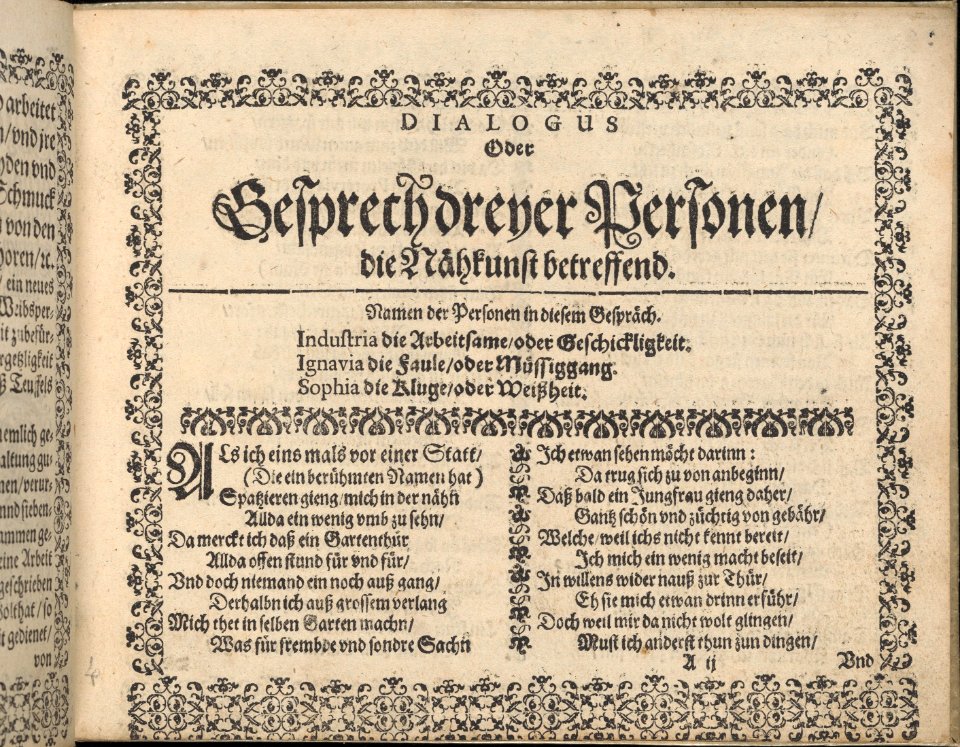 arbeitet
/ vnd jre
yden vnd
Schmuck
von den
horen/ ꝛc.
/ ein neues
Weibsper-
it zubefür-
rgetzligkeit
ß Teuffels
nemlich ge-
altung gu-
nen/ verur-
nnd sieben-
ummen ge-
eine Arbeit
geschrieben
olthat/ so
t gedienet/
von
DIALOGUS
Oder
Gesprech dreyer Personen/
die Nähkunst betreffend.
Namen der Personen in diesem Gespräch.
Industria die Arbeitsame/ oder Geschickligkeit.
Ignavia die Faule/ oder Müssiggang.
Sophia die Kluge/ oder Weißheit.
ALs ich eins mals vor einer Statt/
(Die ein berühmten Namen hat)
Spatzieren gieng/ mich in der nähn
Allda ein wenig vmb zu sehn/
Da merckt ich daß ein Gartenthür
Allda offen stund für vnd für/
Vnd doch niemand ein noch auß gang/
Derhalbn ich auß grossem verlang
Mich thet in selben Garten machn/
Was für frembde vnd sondre Sachn
Ich etwan sehen möcht darinn:
Da trug sich zu von anbeginn/
Daß bald ein Jungfrau gieng daher/
Gantz schön vnd züchtig von gebähr/
Welche/ weil ichs nicht kennt bereit/
Ich mich ein wenig macht beseit/
In willens wider nauß zur Thür/
Eh sie mich etwan drinn erführ/
Doch weil mir da nicht wolt glingen/
Must ich anderst thun zun dingen/
A ij
Vnd